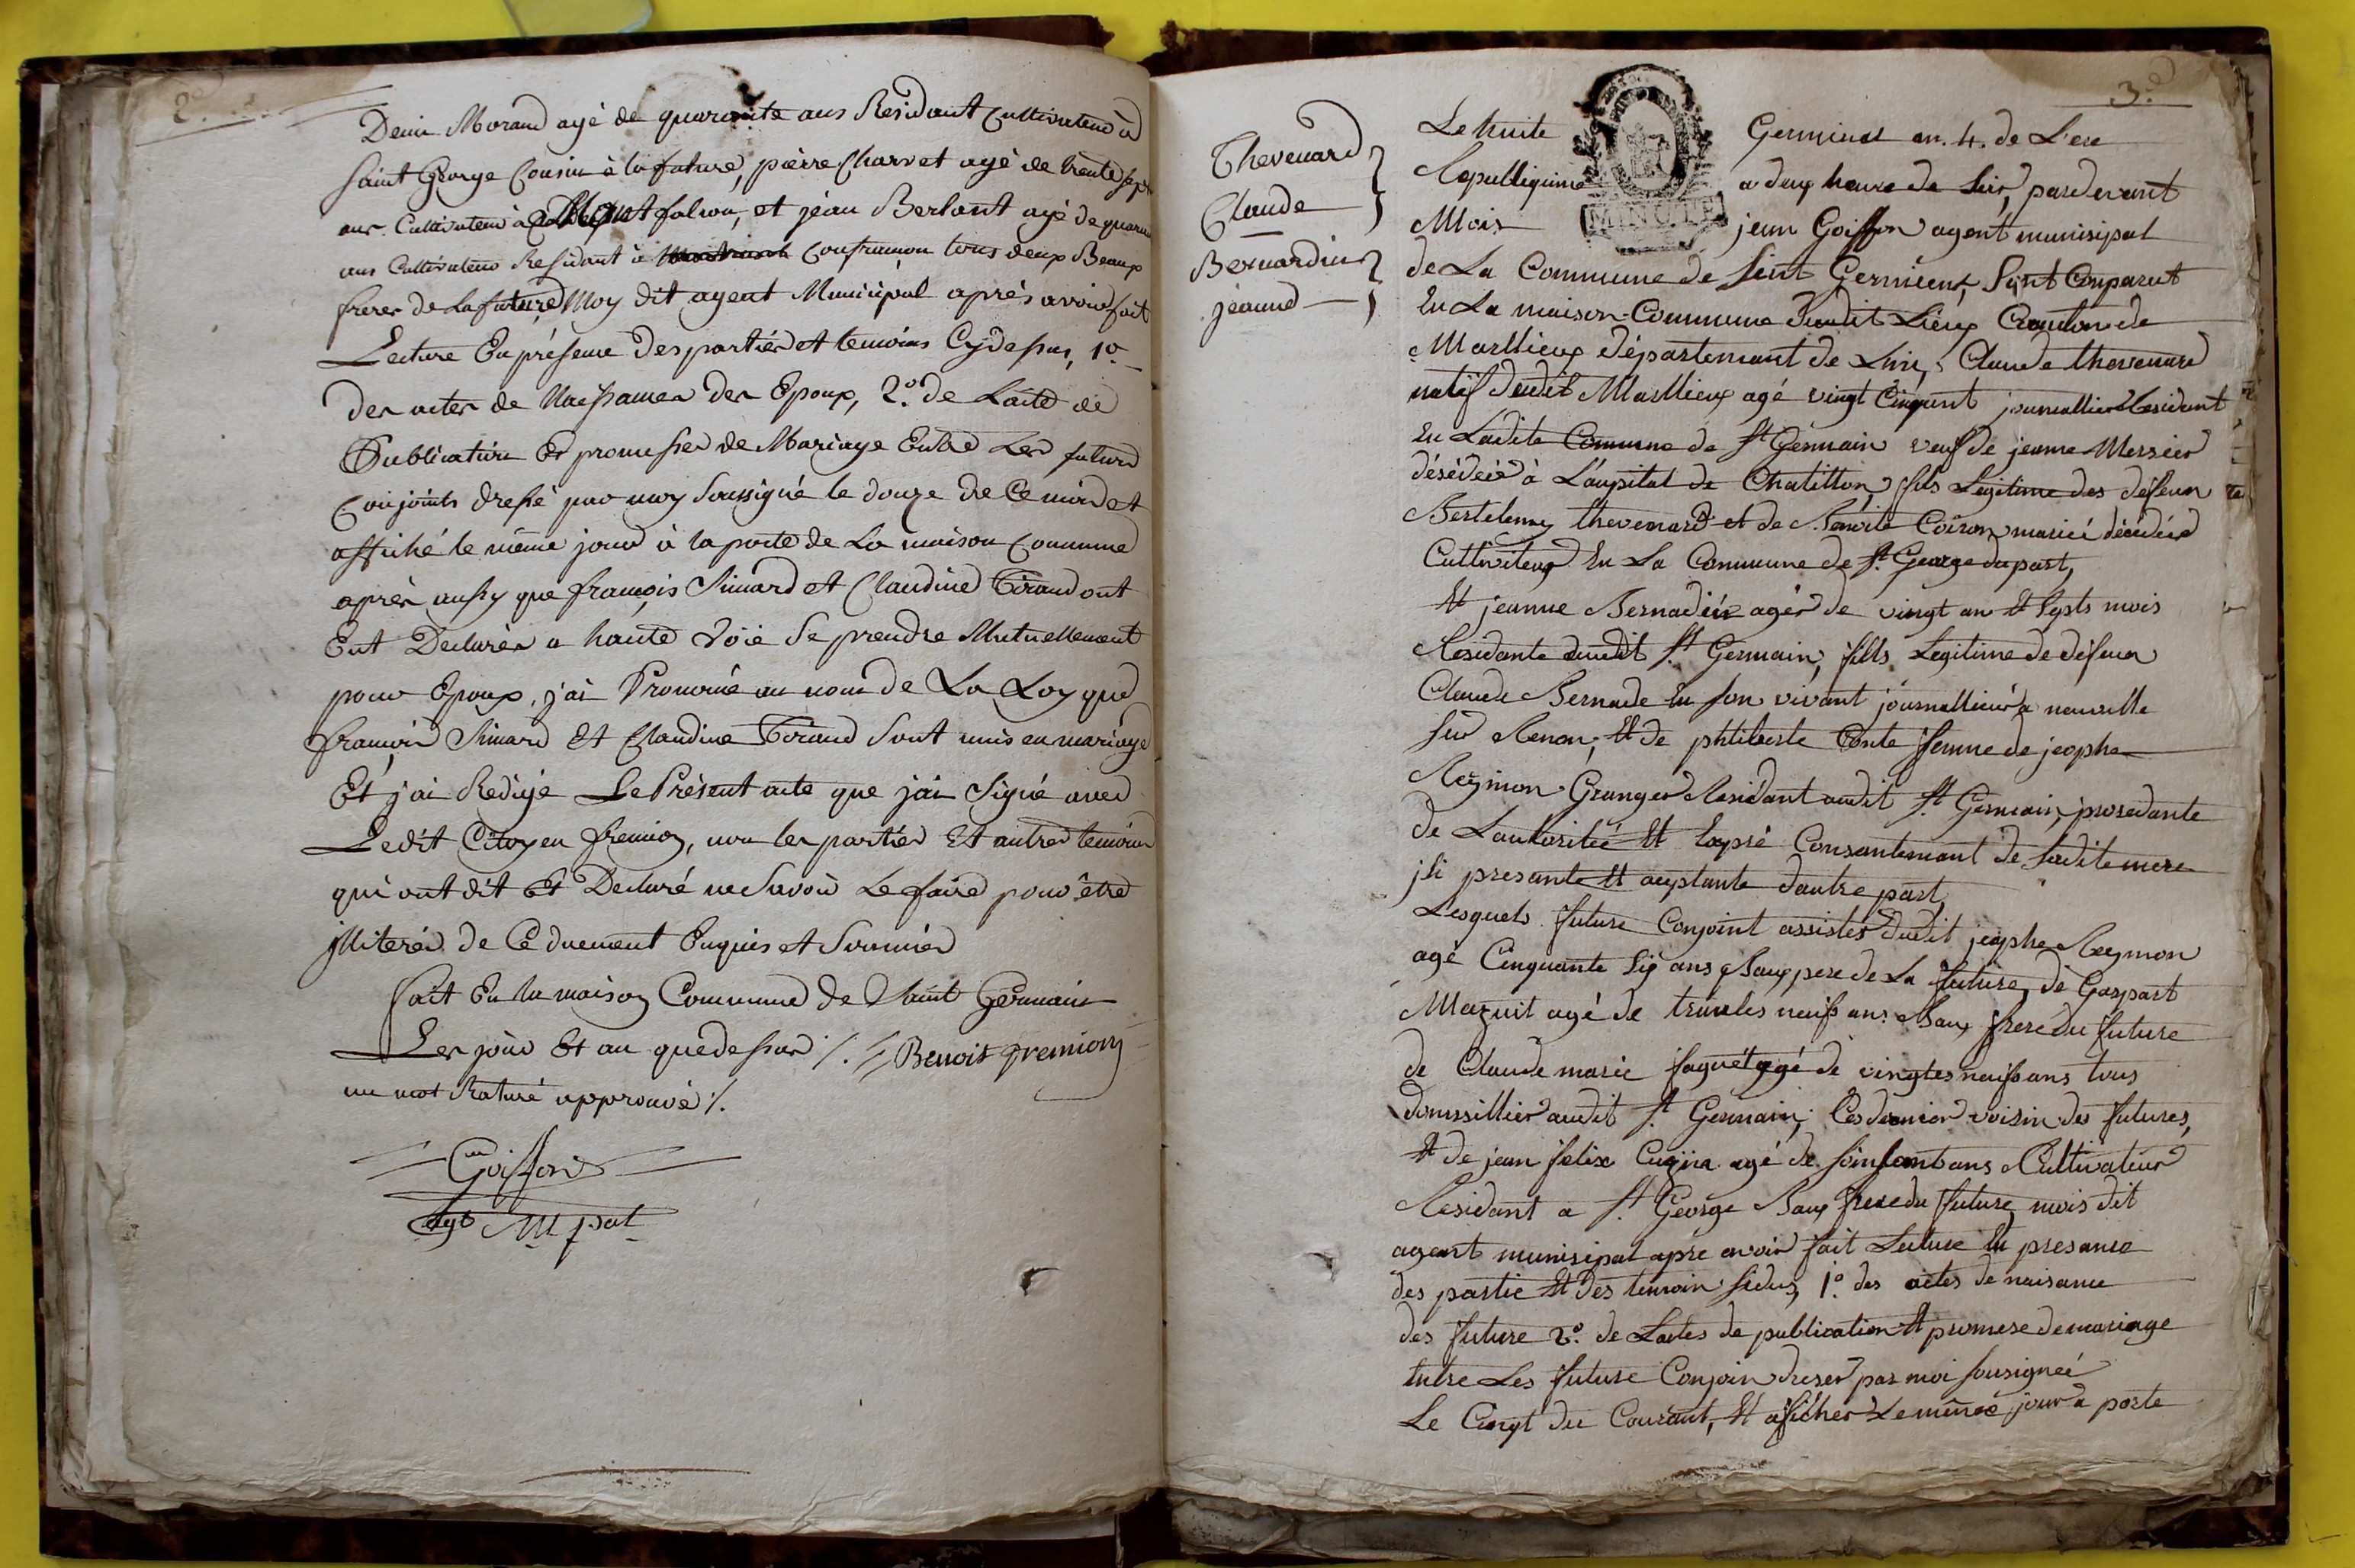 2.e
Denis Morand agé de quarante ans Residant Cultivateur à
Saint George Cousin à la future, pierre Charvet agé de trente sept
ans Cultivateur à falvon, et jéan Berlant agé de quarante
ans Cultivateur Residant à Confrancon tous deux Beaux
freres de la future, Moy dit agent Municipal aprés avoir fait
Lecture En présence des partiés et temoins Cy dessus, 1o
des actes de Naissances des Epoux, 2o. de Lacte de
Publication Et promesses de Mariage Entre Les futurs
Conjoints dressé par moy Soussigné le douze de Ce mois et
affiché le même jour à la porte de La maison Commune
aprés aussy que françois Simard et Claudine Giraud ont
Eut Declarés a haute Voie Se prendre Mutuellement
pour Epoux, j'ai Prononcé au nom de La Loy que
françois Simard Et Claudine Giraud Sont unis en mariage
Et j'ai Redigé Le Présent acte que j'ai Signé avec
Ledit Citoyen fremion, non les partiés Et autres temoins
qui ont dit Et Declaré ne Savoir Le faire pour être
jlliterés de Ce duement Enquis et Sommés
fait En la maison Commune de Saint Germain
Les jour Et an que dessus Benoit fremion
un mot Raturé approuvé
Goiffon
agt Mpal
3.e
Thevenard
Claude
Bernardin
jeanne
Le huite Germinal an. 4. de L'ere
Republiquine a deux heure de Soir, pardevant
Mois jean Goiffon agent munisipal
MINUTE
de La Commune de Sint Germient, Sont Comparut
En La maison Commune dudit Lieux Canton de
Marllieux département de Lin, Claude thevenard
natif dudit Marllieux agé vingt Cinq ant journallier Residant
En Ladite Commune de St Germain veuf de jeanne Mersier
désédéé à L'aupital de Chatillon, fils Legitime des defeun
Bertelemy thevenard et de Benoite Coiron mariéé décédéé
Cultiviteux En La Commune de St. George dupart,
Et jeanne Bernadin agér de vingt an Et Septs mois
Residante audit St Germain, fills Legitime de défeun
Claude Bernade En Son vivant journallieur a neuville
Sur Renon, Et de philiberte Conte femme de jeophe
Reymon Granger Residant audit St Germain, prosedante
de Lautoritéé Et Expré Consantemant de Sadite mere
jsi presante Et aceptante d'autre part,
Lesquels future Conjoint assistés dudit jeophe Reymon
agé Cinquante Six ans Baux pere de La future, de Gaspart
Mazuit agé de trantes neuf ans Baux frere du future
de Claude marie faguet agé de vingtes neuf ans tous
domissillier audit St Germain, Ces dernier voisin des futures,
Et de jean felix Cuzin agé de Soinsant ans Cultivateur
Residant a St George Baux frere du future, mois dit
agent munisipal apre avoir fait Lecture En presance
des partie Et des temoin Sidus, 1o. des actes de naisance
des future 2o. de Lactes de publication Et promese de mariage
Entre Les future Conjoin dreser par moi Sousignéé
Le Cingt du Courant, Et aficher Le mémes jour a porte